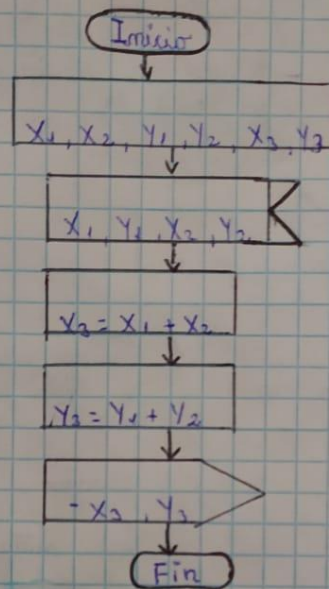 Inicio
X1, X2, Y1, Y2, X3, Y3
X1, Y1, X2, Y2
X3 = X1 + X2
Y3 = Y1 + Y2
- X3, Y3
Fin